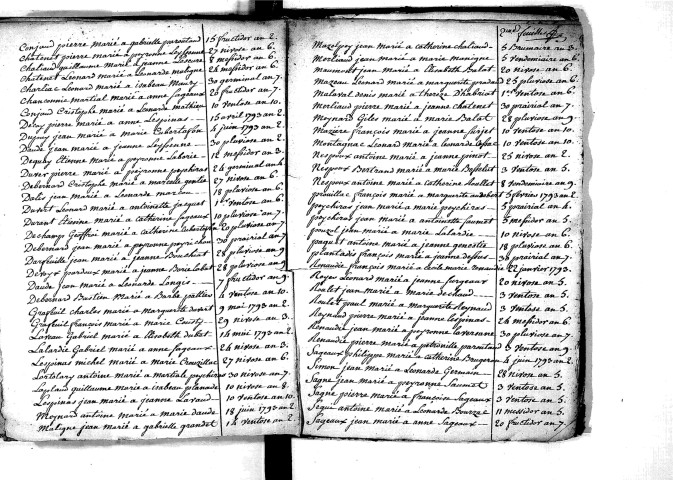 Conjaud pierre marié a gabrielle paroutaud 15 fructidor an 2.
Chatenet pierre marié a peyronne Leyssenne 27 nivose an 6.
Chalaud guillaume marié a jeanne 8 messidor an 6.
Chatenet Léonard marié a Leonarde maligne 26 messidor an 6.
Charliac Leonard marié a izabeau maury 30 germinal an 7.
Chanconnie martial marié a anne Sageaux 26 fructidor an 7.
Conjaud Cristophe marié a Leonarde mathieu 10 Ventose an 10.
Devay pierre marié a anne Lespinas 15 avril 1793 an 2.
Dupuy jean marié a marie Cubertafon 4 juin 1793 an 2.
Daude jean marié a jeanne Leyssenne 30 pluviose an 2.
Dequby Etienne marié a peyronne Laborie 12 messidor an 3.
Duver pierre marié a peyronne peycheras 24 germinal an 4
Debernard Cristophe marié a marcelle gentie 27 nivose an 6.
Dalis jean marié a Leonarde 18 pluviose an 6.
Duvert Leonard marié a antoinette jaquet 1er Ventose an 6.
Durent Etienne marié a catherine Sageaux 10 pluviose an 7.
Dechamps Geoffroi marié a catherine 20 pluviose an 7.
Debernard jean marié a peyronne peyrichon 30 prairial an 7.
Darfeuille jean marié a jeanne Bouchiat 28 pluviose an 9
marié a jeanne 28 pluviose an 9.
Daude jean marié a Leonarde Longis 7 fructidor an 9.
Debernard Bastien marié a Barbe 4 Ventose an 10.
Graffeuil charles marié a marguerite duvert 9 mai 1793 an 2.
Graffeuil françois marié a marie Cousty 29 nivose an 3.
Loreau Gabriel marié a Elizabeth dubat 14 mai 1793 an 2.
Lalardie Gabriel marié a anne Sageaux 24 nivose an 3.
Lespinas michel marié a Marie Crauzillac 27 nivose an 6.
marié a martiale peycheras 30 nivose an 7.
guillaume marié a izabeau planade 10 nivose an 8.
Lespinas jean marié a jeanne Laraud 10 Ventose an 10.
Meynard antoine marié a marie daude 18 juin 1793 an 2
Maligne jean marié a gabrielle grandet 14 Ventose an 2.
feuille
Mazelpoy jean marié a catherine chalaud 5 Brumaire an 3.
Morliaud jean marié a marie manigne 5 Vendemiaire an 6.
maumont jean marié a Elisabeth Balat 20 nivose an 6.
Mazeau Leonard marié a marguerite 25 pluviose an 6.
Malaval denis marié a thereze 1er Ventose an 6.
Morliaud pierre marié a jeanne chatenet 30 prairial an 7.
Meynard Giles marié a marie Balat 28 pluviose an 9.
Maziere françois marié a jeanne farjet 10 Ventose an 10.
Montagnac Leonard marié a Leonarde 10 Ventose an 10.
Nespoux antoine marié a jeanne pinot 25 nivose an 2.
Nespoux Bertrand marié a marie 3 Ventose an 5.
Nespoux antoine marié a catherine 8 Vendemiaire an 9.
françois marié a marguerite 5 fevrier 1793 an 2.
peycheras jean marié a marie peycheras 5 prairial an 4.
peycheras jean marié a antoinette 3 messidor an 5.
pouzol jean marié a marie Lalardie 10 nivose an 6.
paquet antoine marié a jeanne genestie 18 pluviose an 6.
plantadis françois marié a jeanne 30 prairial an 7.
Renaudie françois marié a marie 22 janvier 1793.
Leonard marié a jeanne 20 nivose an 5.
Roulet jean marié a marie dechaud 3 Ventose an 5.
Roulet paul marié a marguerite Reynaud 3 Ventose an 5.
Reynaud pierre marié a jeanne Lespinas 24 messidor an 6.
Renaudie jean marié a peyronne 30 pluviose an 7.
Renaudie pierre marié a petronille paroutaud 3 Ventose an 9.
Sageaux philippe marié a catherine 4 juin 1793 an 2.
Simon jean marié a Leonarde Germain 28 nivose an 5.
Sagne jean marié a peyronne 3 Ventose an 5.
Sagne pierre marié a françoise Sageaux 3 Ventose an 5.
Segui antoine marié a Leonarde 11 messidor an 5.
Sageaux jean marié a anne Sageaux 20 fructidor an 7.